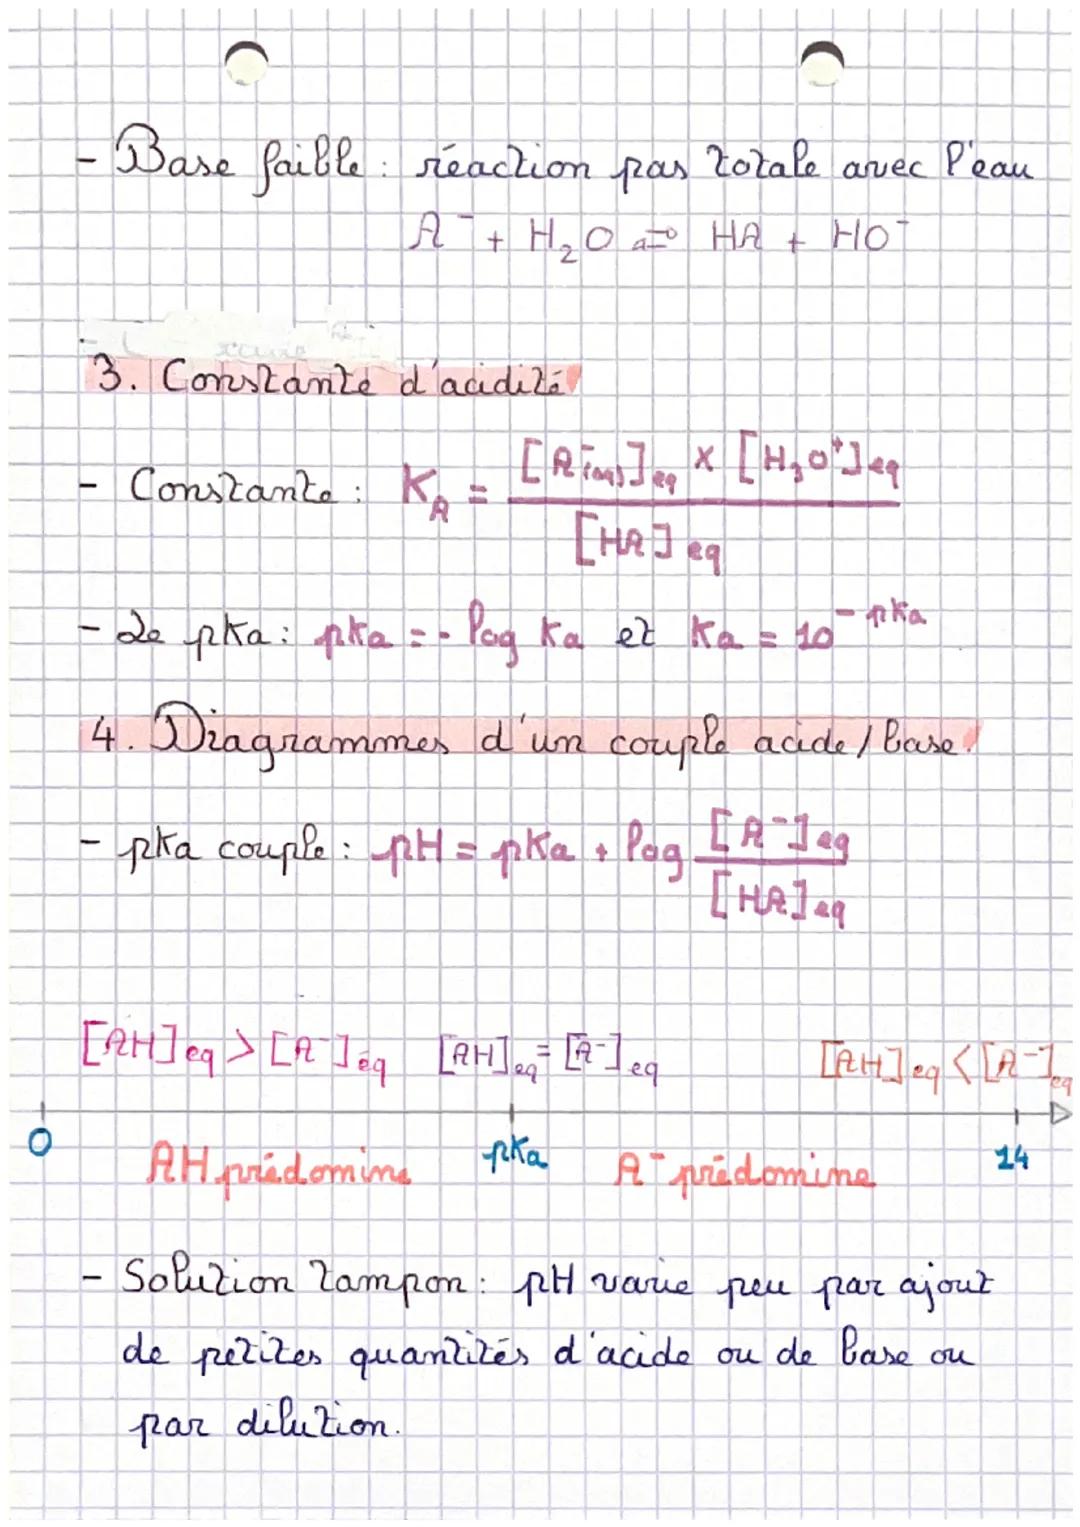 - Base faible : réaction pas totale avec l'eau
A⁻ + H₂O ⇌ HA + HO⁻
3. Constante d'acidité
- Constante : K_A = [A⁻(aq)]eq × [H₃O⁺]eq / [HA]eq
- Le pka : pka = - log Ka et Ka = 10^-pka
4. Diagrammes d'un couple acide / base
- pka couple : pH = pKa + log [A⁻]eq / [HA]eq
[AH]eq > [A⁻]éq [AH]eq = [A⁻]eq [AH]eq < [A⁻]eq
0 pKa 14
AH prédomine A⁻ prédomine
- Solution tampon : pH varie peu par ajout
de petites quantités d'acide ou de base ou
par dilution.